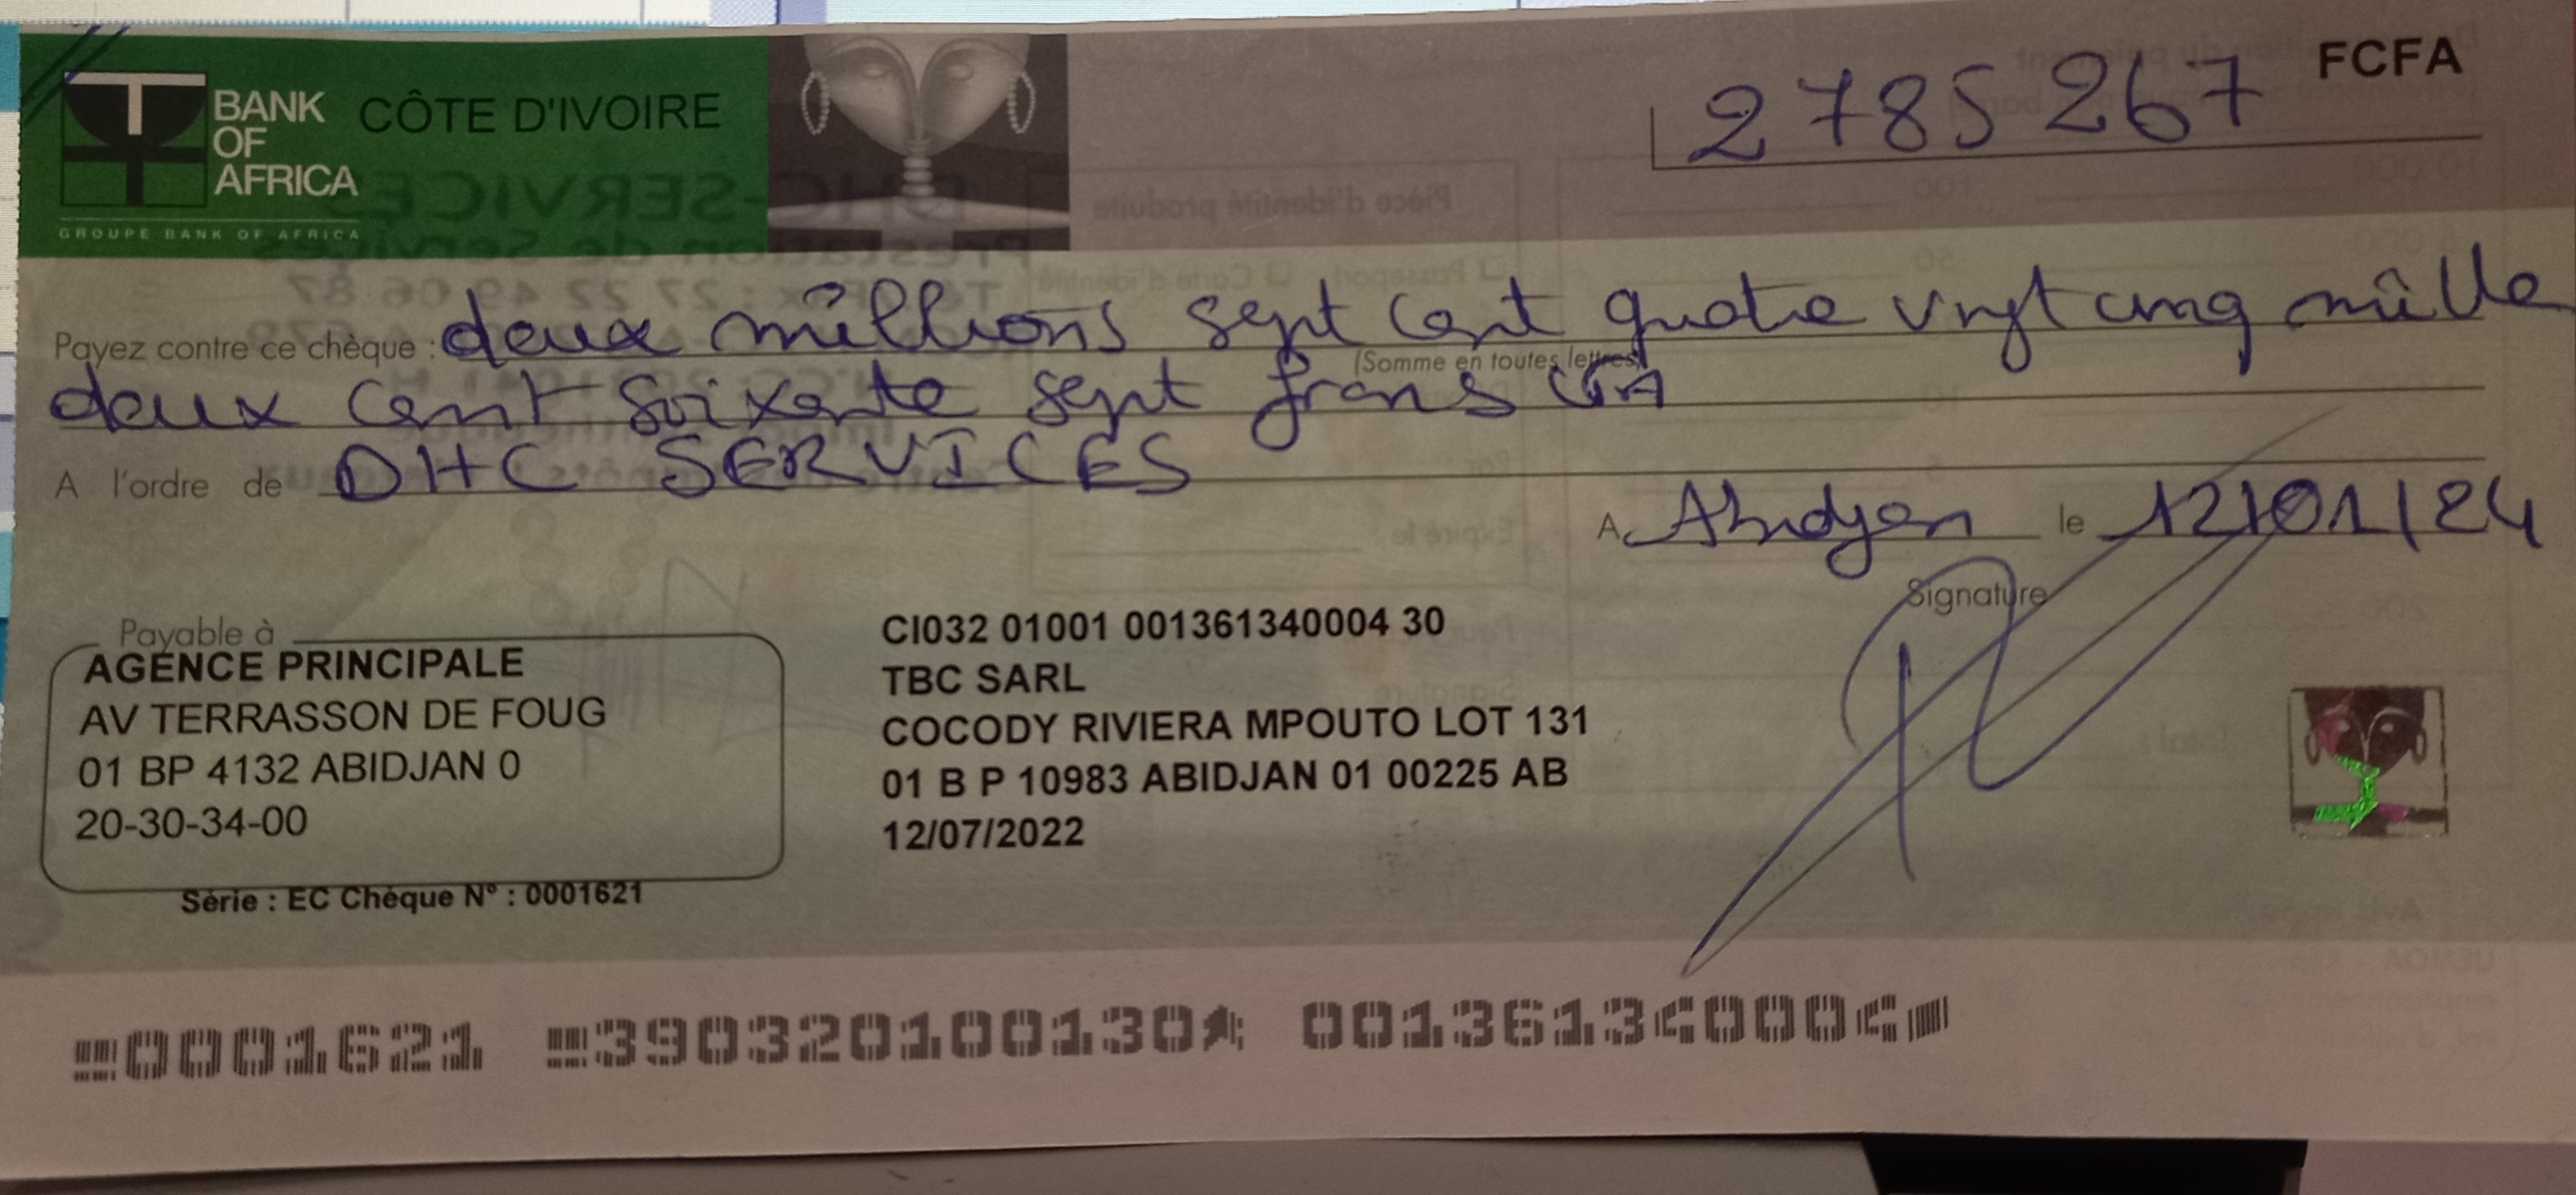 BANK
OF
AFRICA
CÔTE D'IVOIRE
GROUPE BANK OF AFRICA
2785267 FCFA
Payez contre ce chèque : deux millions sept cent quatre vingt cinq mille
(Somme en toutes lettres)
deux cent soixante sept frans CFA
A l'ordre de DHC SERVICES
A Abidjan le 12/01/24
Signature
Payable à
AGENCE PRINCIPALE
AV TERRASSON DE FOUG
01 BP 4132 ABIDJAN 0
20-30-34-00
CI032 01001 001361340004 30
TBC SARL
COCODY RIVIERA MPOUTO LOT 131
01 B P 10983 ABIDJAN 01 00225 AB
12/07/2022
Série : EC Chèque N° : 0001621
0001621 390320100130 001361340004